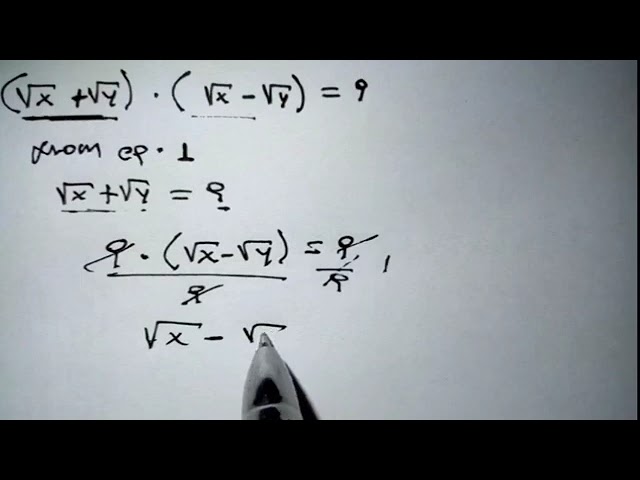 (√x + √y) · (√x − √y) = 9
from eq. 1
√x + √y = 9
9 · (√x − √y) / 9 = 9 / 9 1
√x − √